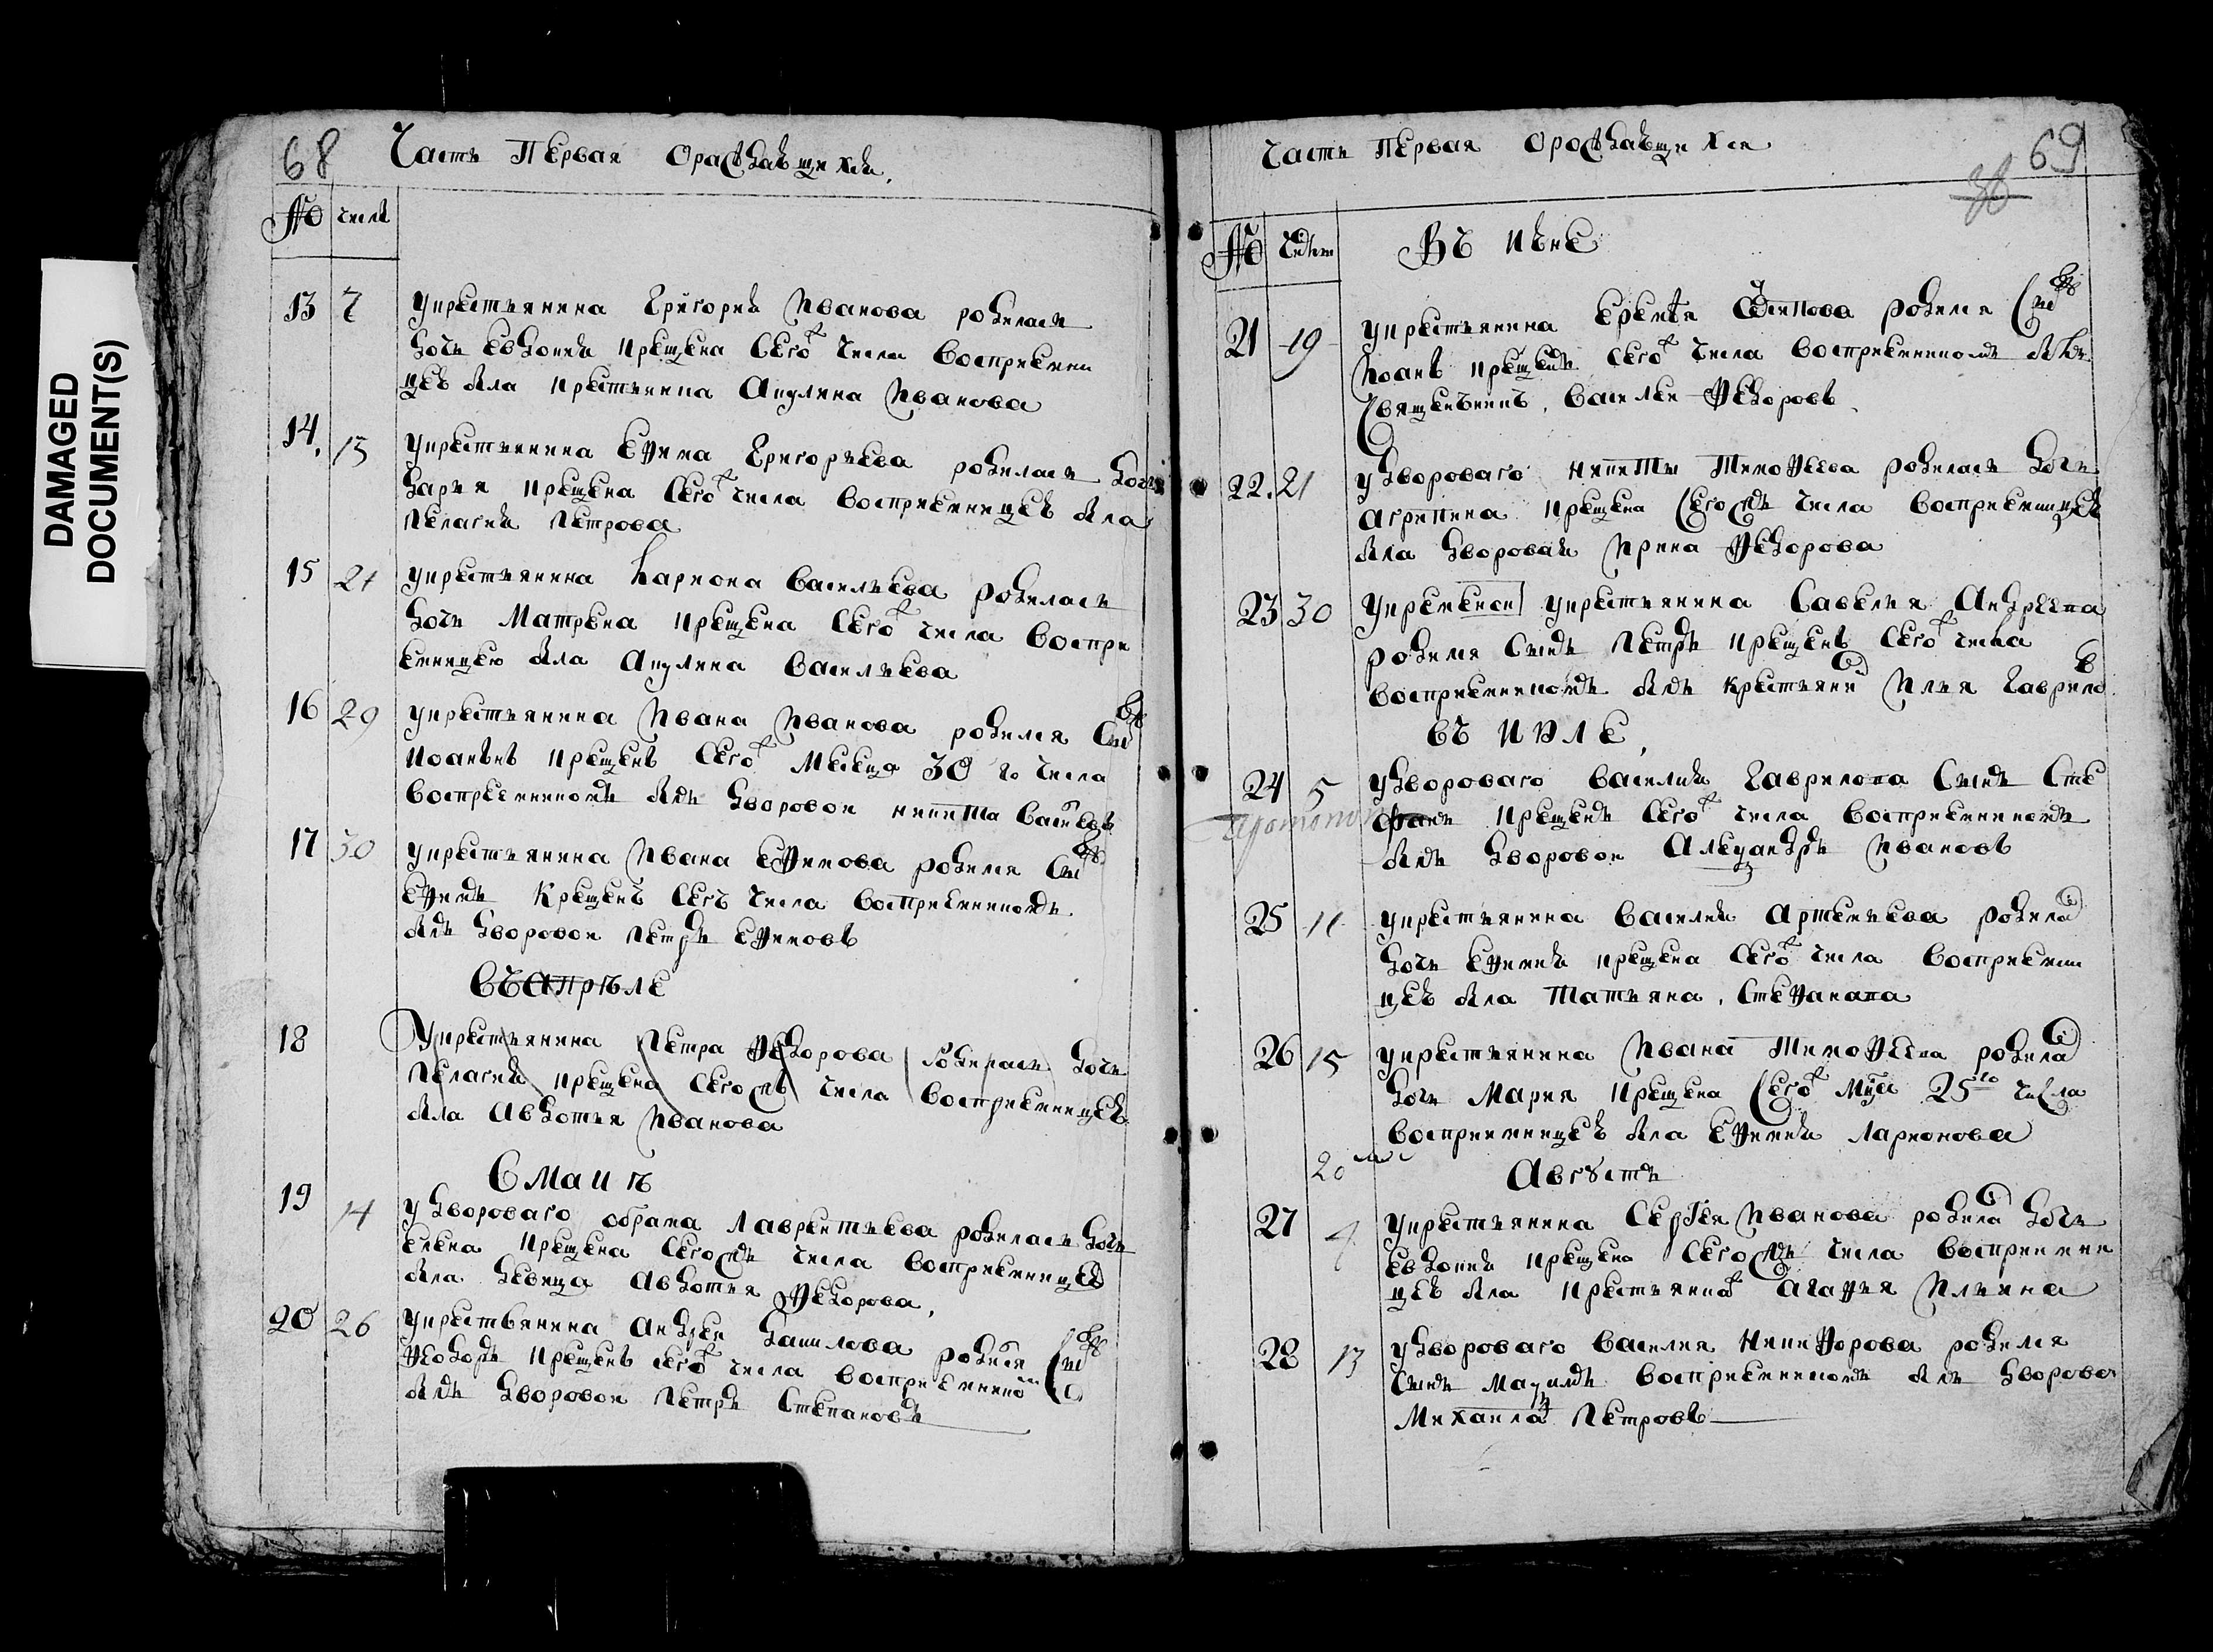 DAMAGED
DOCUMENT(S)
68 Часть Первая ораждающихся
№ числа
13 7 укрестьянина Григория Иванова родилась
дочь евдокия крещена сего числа восприемни
цею была крестьянина Акулина Иванова
14. 13 укрестьянина ефима Григорьева родилась дочь
дарья крещена сего числа восприемницею была
Пелагия Петрова
15 21 укрестьянина лариона васильева родилась
дочь Матрена крещена сего числа воспри
емницею была Акулина васильева
16 29 укрестьянина Ивана Иванова родился сынъ
иоаннъ крещенъ сего месеца 30 го числа
восприемникомъ былъ дворовои никита васильевъ
17 30 укрестьянина Ивана ефимова родился сынъ
ефимъ крещенъ сегъ числа восприемникомъ
былъ дворовои петръ ефимовъ
въ апрѣле
18 укрестьянина петра федорова родилась дочь
пелагия крещена сегожъ числа восприемницею
была авдотья Иванова
в маиѣ
19 14 удвороваго обрама лаврентьева родилась дочь
елена крещена сегожъ числа восприемницею
была девица авдотья федорова,
20 26 укрестьянина андреи данилова родился сынъ
феодоръ крещенъ сего числа восприемникомъ
былъ дворовои петръ степановъ
Часть Первая ораждающихся 69
38
№ Въ июне
21 19 укрестьянина еремея родился сынъ
иоанъ крещенъ сего числа восприемникомъ былъ
священникъ, василеи федоровъ
22. 21 удвороваго никиты тимофеева родилась дочь
агрипина крещена сегожъ числа восприемницею
была дворовая Ирина федорова
23 30 укрестьянина савелья Андреева
родился сынъ петръ крещенъ сего числа
восприемникомъ былъ крестьянинъ Илья Гаврилов
въ июле,
24 5 удвороваго василия гаврилова сынъ сте
фанъ крещенъ сего числа восприемникомъ
былъ дворовои Александръ Ивановъ
25 11 укрестьянина василия артемьева родилас
дочь ефимия крещена сего числа восприемни
цею была татьяна, стефанова
26 15 укрестьянина Ивана тимофеева родилас
дочь мария крещена сего мца 25го числа
восприимницею была ефимия ларионова
20
Августъ
27 4 укрестьянина Сергея Иванова родилас дочь
евдокия крещена сегожъ числа восприимни
цею была крестьянина агафья Ильина
28 13 удвороваго василия никифорова родился
сынъ восприемникомъ былъ дворовои
михаила петровъ